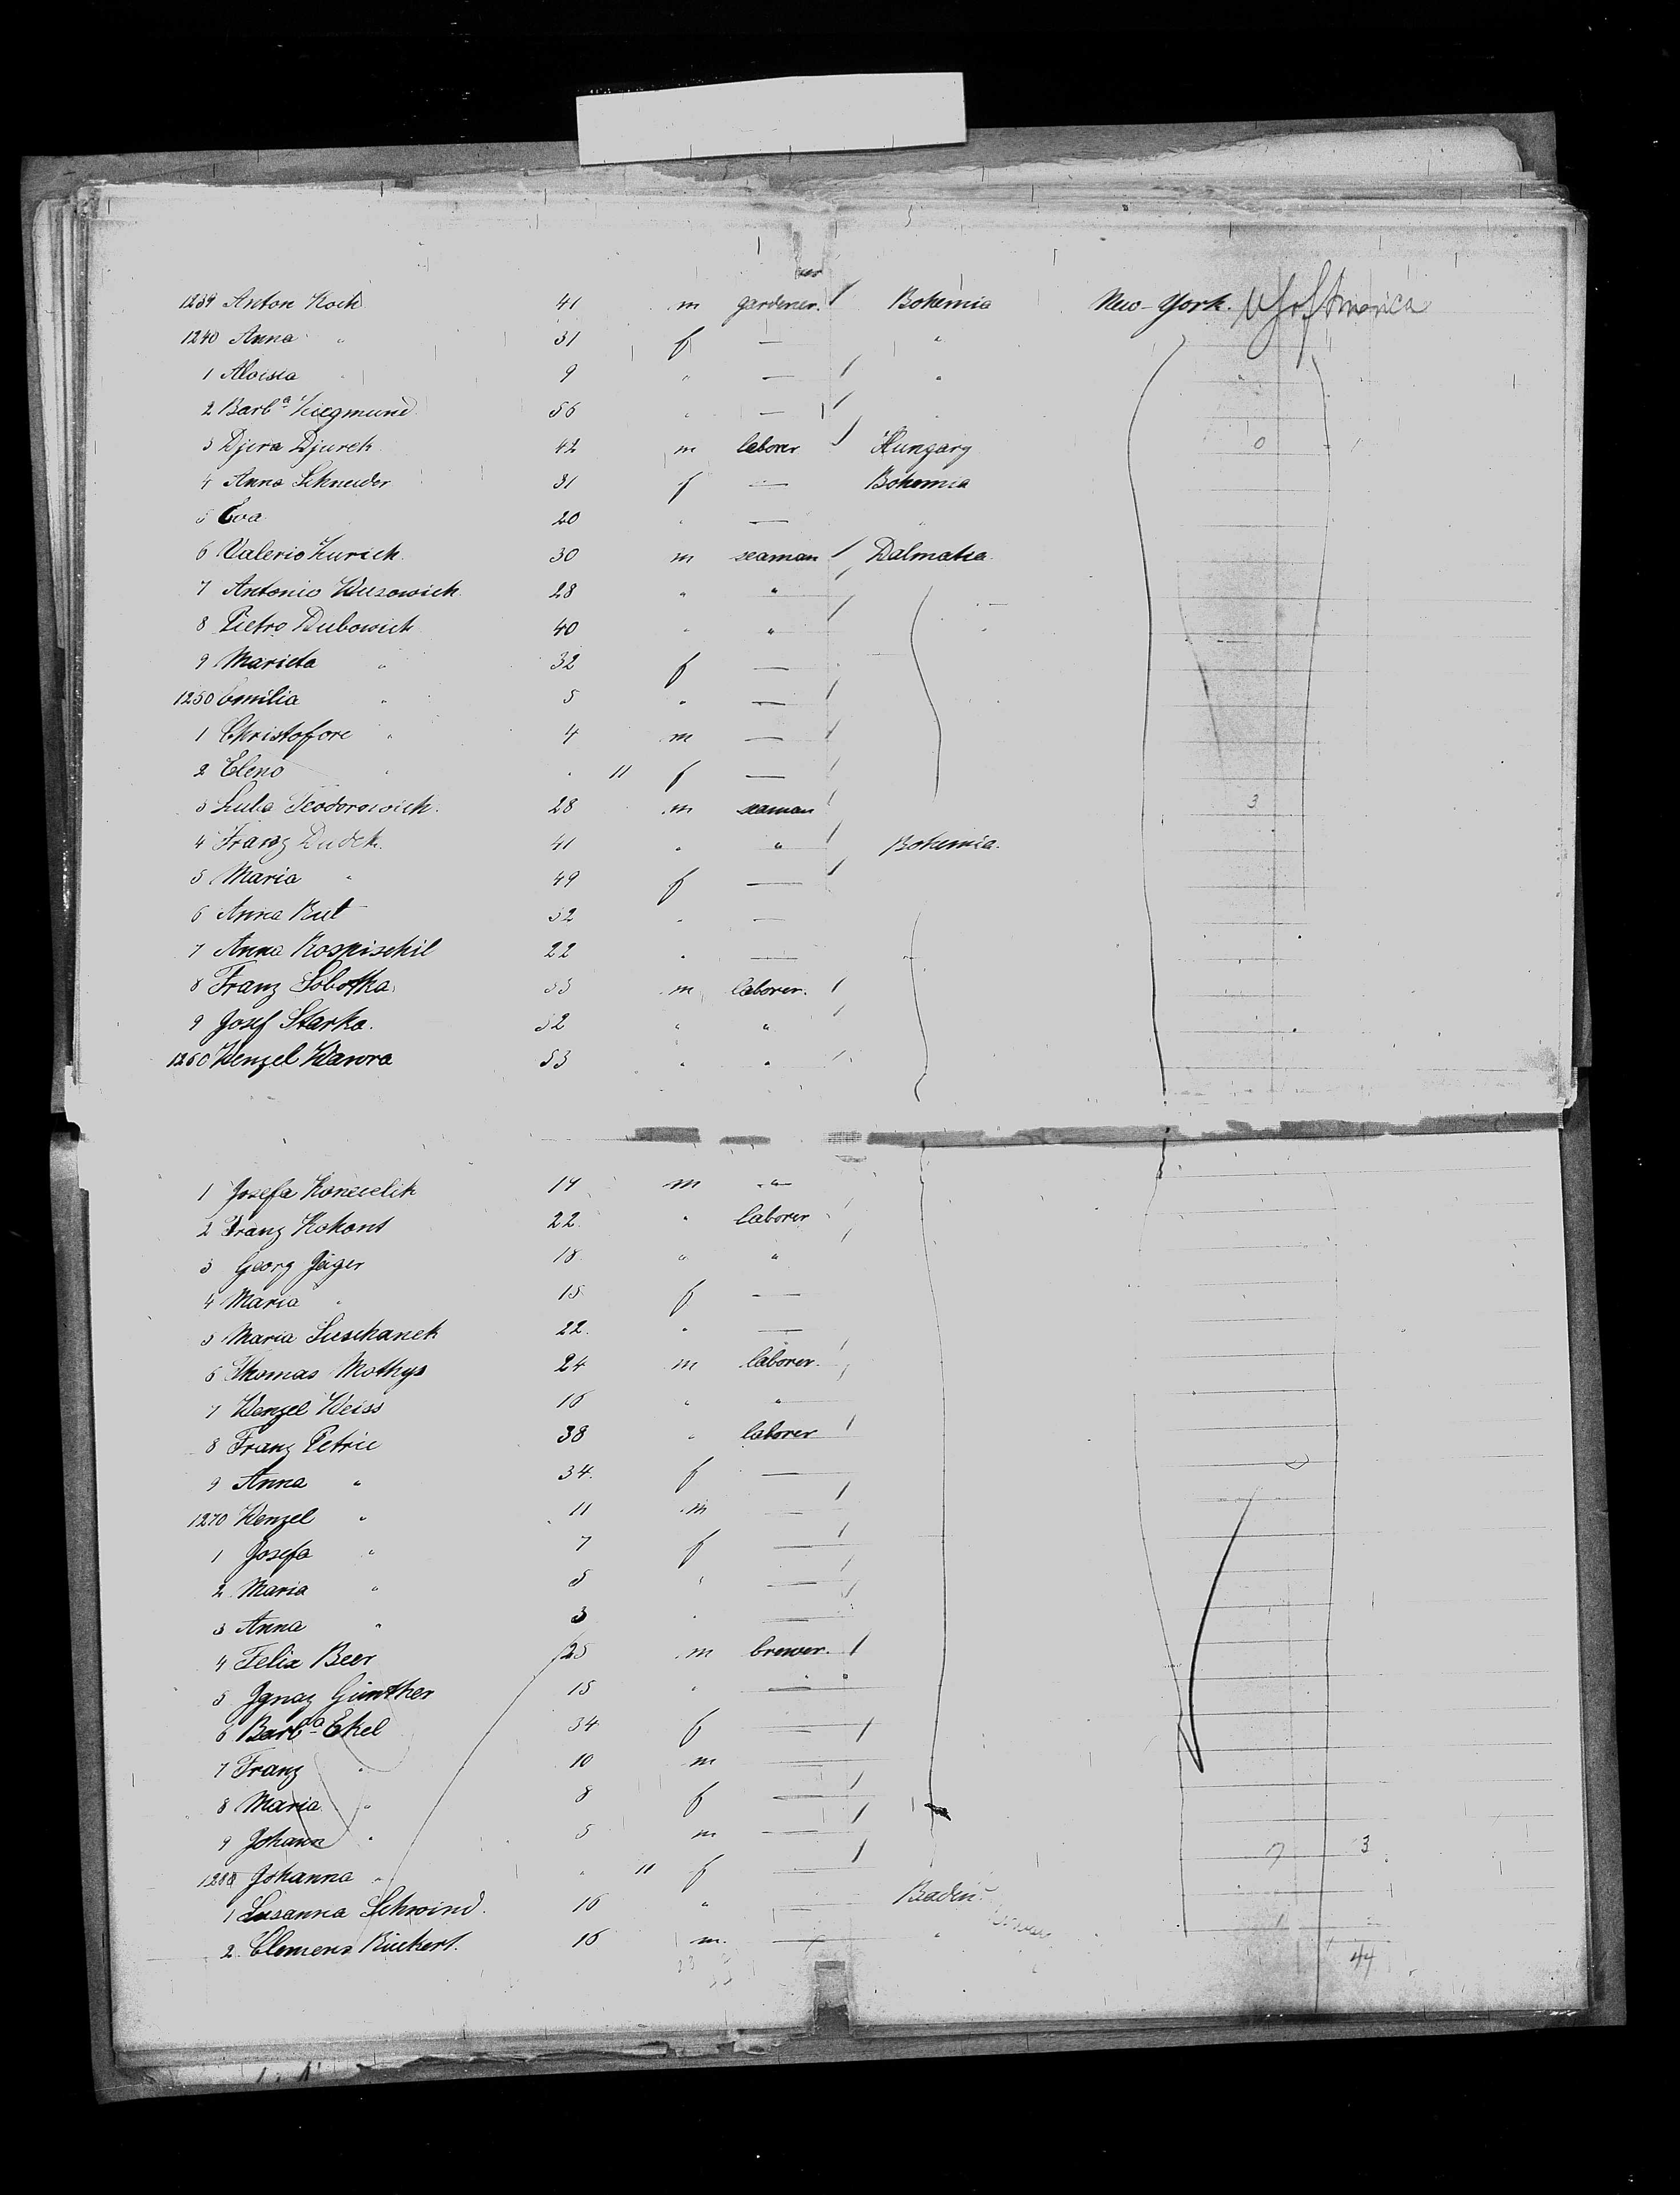 1239 Anton Koch 41 m gardener. Bohemia New-York. U S of America
1240 Anna " 31 f — "
1 Aloisia " 9 " — "
2 Barbᵃ Siegmund 56 " — "
3 Djura Djurek 42 m laborer Hungary 0
4 Anna Schneider 31 f — Bohemia
5 Eva 20 " — "
6 Valerio Zurich. 30 m seaman Dalmatia
7 Antonio Wusowich 28 " "
8 Pietro Dubowich 40 " "
9 Marieta " 32 f —
1250 Emilia " 5 " —
1 Christofore " 4 m —
2 Eleno " " 11 f —
3 Luba Teodorowich. 28 m seaman 3
4 Franz Dudek. 41 " " Bohemia.
5 Maria " 49 f —
6 Anna Rut 52 " —
7 Anna Kospischil 22 " —
8 Franz Sobotka 53 m laborer.
9 Josef Starka. 52 " "
1260 Wenzel Wawra 53 " "
1 Josefa 14 m "
2 Franz Kokont 22 " laborer
3 Georg Jäger 18 " "
4 Maria " 15 f —
5 Maria Suschanek 22. " —
6 Thomas Mathys 24 m laborer.
7 Wenzel Weiss 16 " "
8 Franz Petric 38 " laborer
9 Anna " 34. f —
1270 Wenzel " 11 m —
1 Josefa " 7 f —
2 Maria " 5 " —
3 Anna " 3 " —
4 Felix Beer 25 m brewer.
5 Ignaz Günther 15 " —
6 Barbᵃ Ekel 34 f —
7 Franz " 10 m —
8 Maria " 8 f —
9 Johann " 5 m — 7 3
1280 Johanna " " 11 f —
1 Susanna Schwind. 16 " — Baden
2 Clemens Rückert. 16 m. — " 44